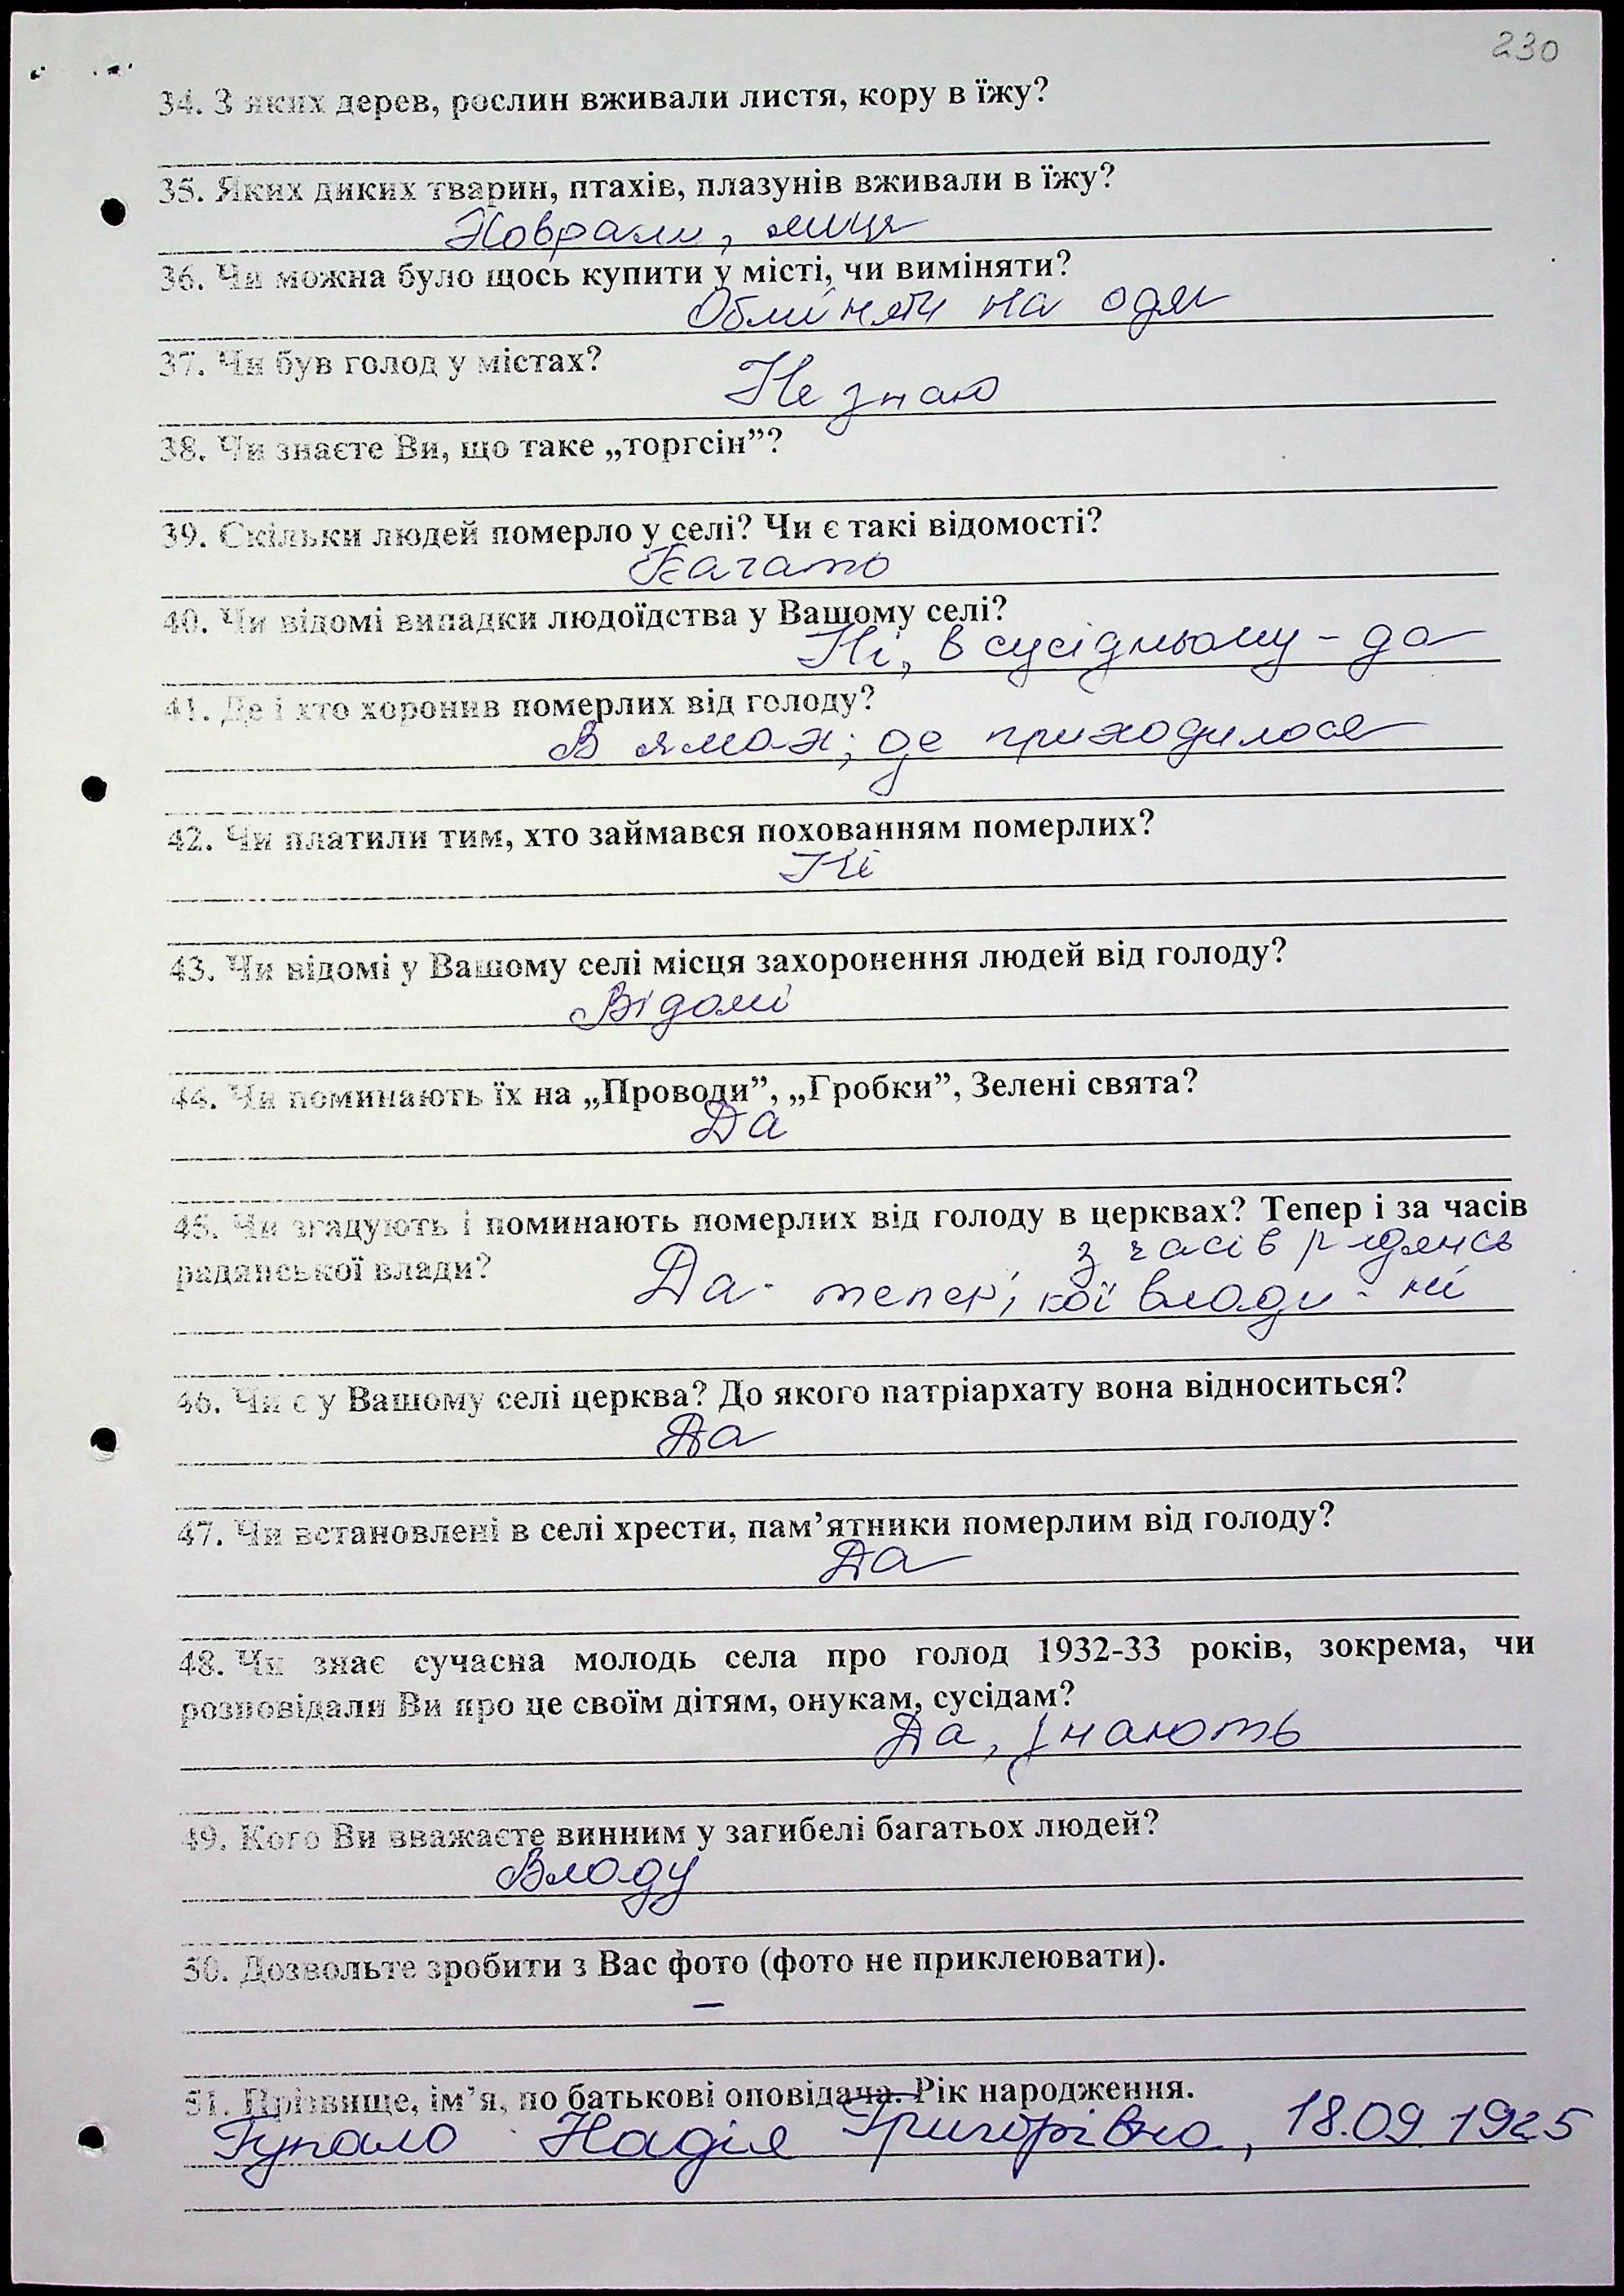 230
34. З яких дерев, рослин вживали листя, кору в їжу?
35. Яких диких тварин, птахів, плазунів вживали в їжу?
Ховрахи, яйця
36. Чи можна було щось купити у місті, чи виміняти?
Обміняти на одяг
37. Чи був голод у містах?
Не знаю
38. Чи знаєте Ви, що таке „торгсін”?
39. Скільки людей померло у селі? Чи є такі відомості?
Багато
40. Чи відомі випадки людоїдства у Вашому селі?
Ні, в сусідньому - да
41. Де і хто хоронив померлих від голоду?
В ямах, де приходилося
42. Чи платили тим, хто займався похованням померлих?
Ні
43. Чи відомі у Вашому селі місця захоронення людей від голоду?
Відомі
44. Чи поминають їх на „Проводи”, „Гробки”, Зелені свята?
Да
45. Чи згадують і поминають померлих від голоду в церквах? Тепер і за часів
радянської влади?
з часів радянсь
Да - тепер, кої влади - ні
46. Чи є у Вашому селі церква? До якого патріархату вона відноситься?
Да
47. Чи встановлені в селі хрести, пам’ятники померлим від голоду?
Да
48. Чи знає сучасна молодь села про голод 1932-33 років, зокрема, чи
розповідали Ви про це своїм дітям, онукам, сусідам?
Да, знають
49. Кого Ви вважаєте винним у загибелі багатьох людей?
Владу
50. Дозвольте зробити з Вас фото (фото не приклеювати).
–
51. Прізвище, ім’я, по батькові оповідача. Рік народження.
Гупало Надія Григорівна, 18.09.1925